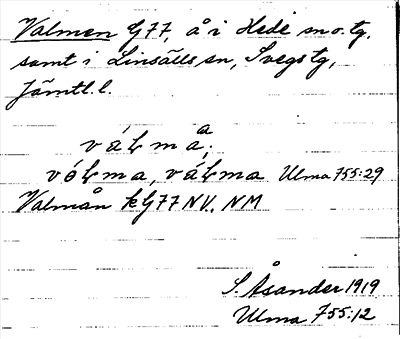 Valmen G77, å i Hede sn o. tg.
samt i Linsälls sn, Svegs tg,
Jämtl. l.
a
våLmå;
vóLma, váLma Ulma 755:29
Valmån kG77NV., NM
S. Åsander 1919
Ulma 755:12